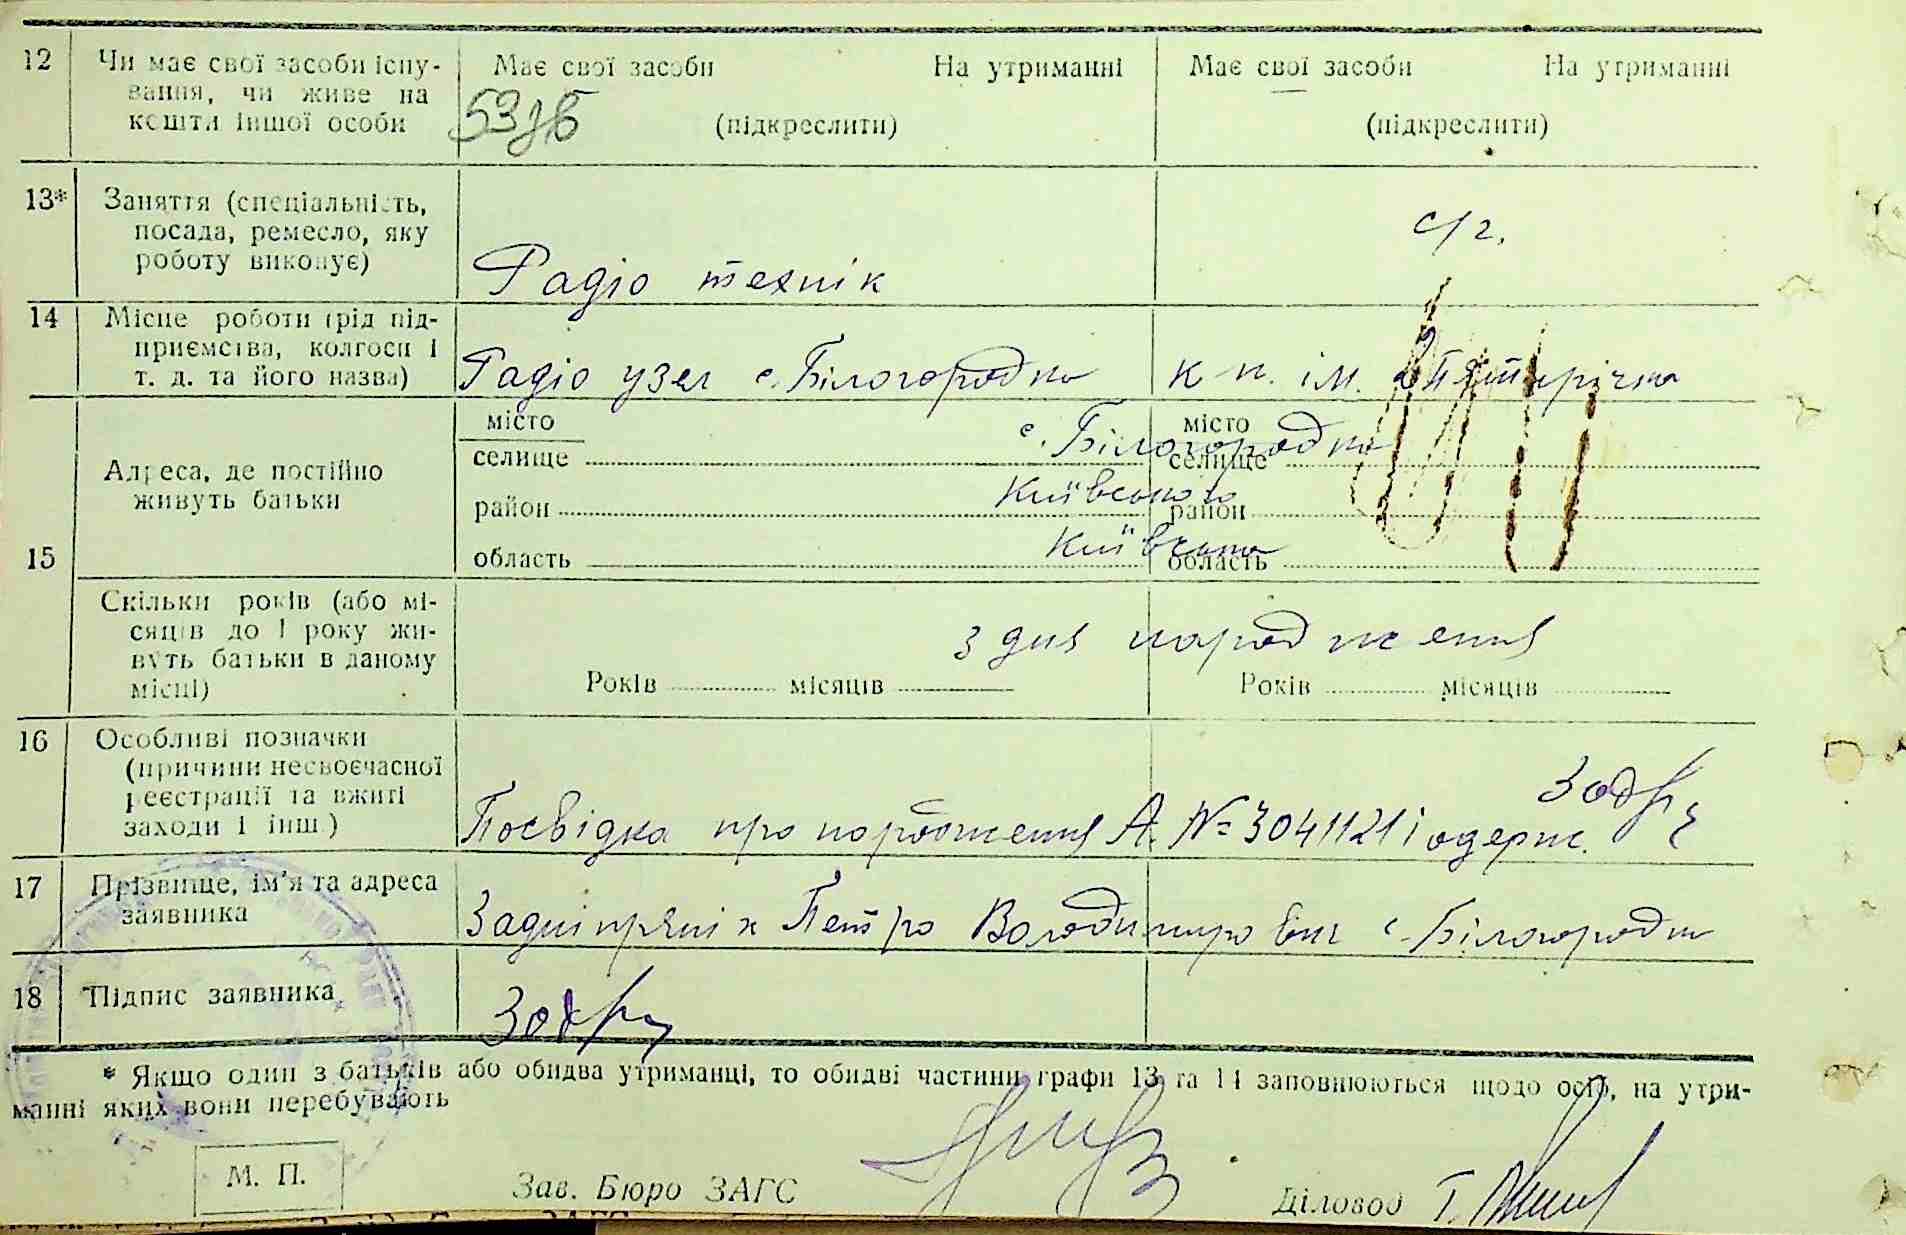 12 Чи має свої засоби існу-
вання, чи живе на
кошти іншої особи
Має свої засоби На утриманні
(підкреслити)
Має свої засоби На утриманні
(підкреслити)
13* Заняття (спеціальність,
посада, ремесло, яку
роботу виконує)
Радіо технік
с/г.
14 Місце роботи (рід під-
приємства, колгосп і
т. д. та його назва)
Радіо узел с. Білогородка
к-п. ім. 2 П'ятирічки
15 Адреса, де постійно
живуть батьки
місто
селище
район
область
місто
селище
район
область
с. Білогородка
Київського
Київська
Скільки років (або мі-
сяців до 1 року жи-
вуть батьки в даному
місці)
з дня народження
Років місяців
Років місяців
16 Особливі позначки
(причини несвоєчасної
реєстрації та вжиті
заходи і інш.)
Посвідка про народження А. № 3041121 одерж.
17 Прізвище, ім'я та адреса
заявника
Задніпряніх Петро Володимирович с. Білогородка
18 Підпис заявника
* Якщо один з батьків або обидва утриманці, то обидві частини графи 13 та 14 заповнюються щодо осіб, на утри-
манні яких вони перебувають
М. П.
Зав. Бюро ЗАГС
Діловод